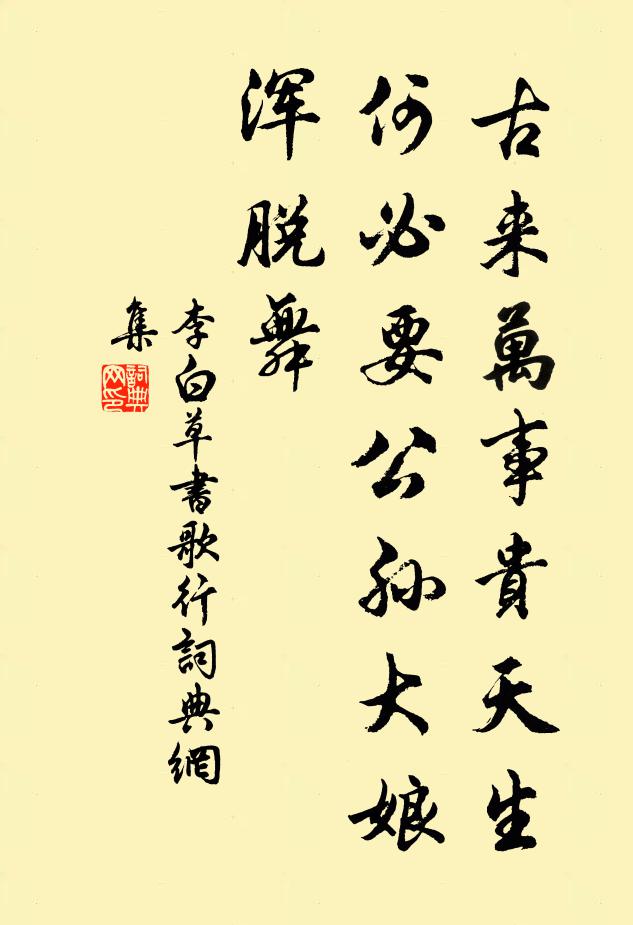 古来萬事貴天生
何必要公孫大娘
渾脱舞
李白草書歌行詞典網
集
詞典
网印